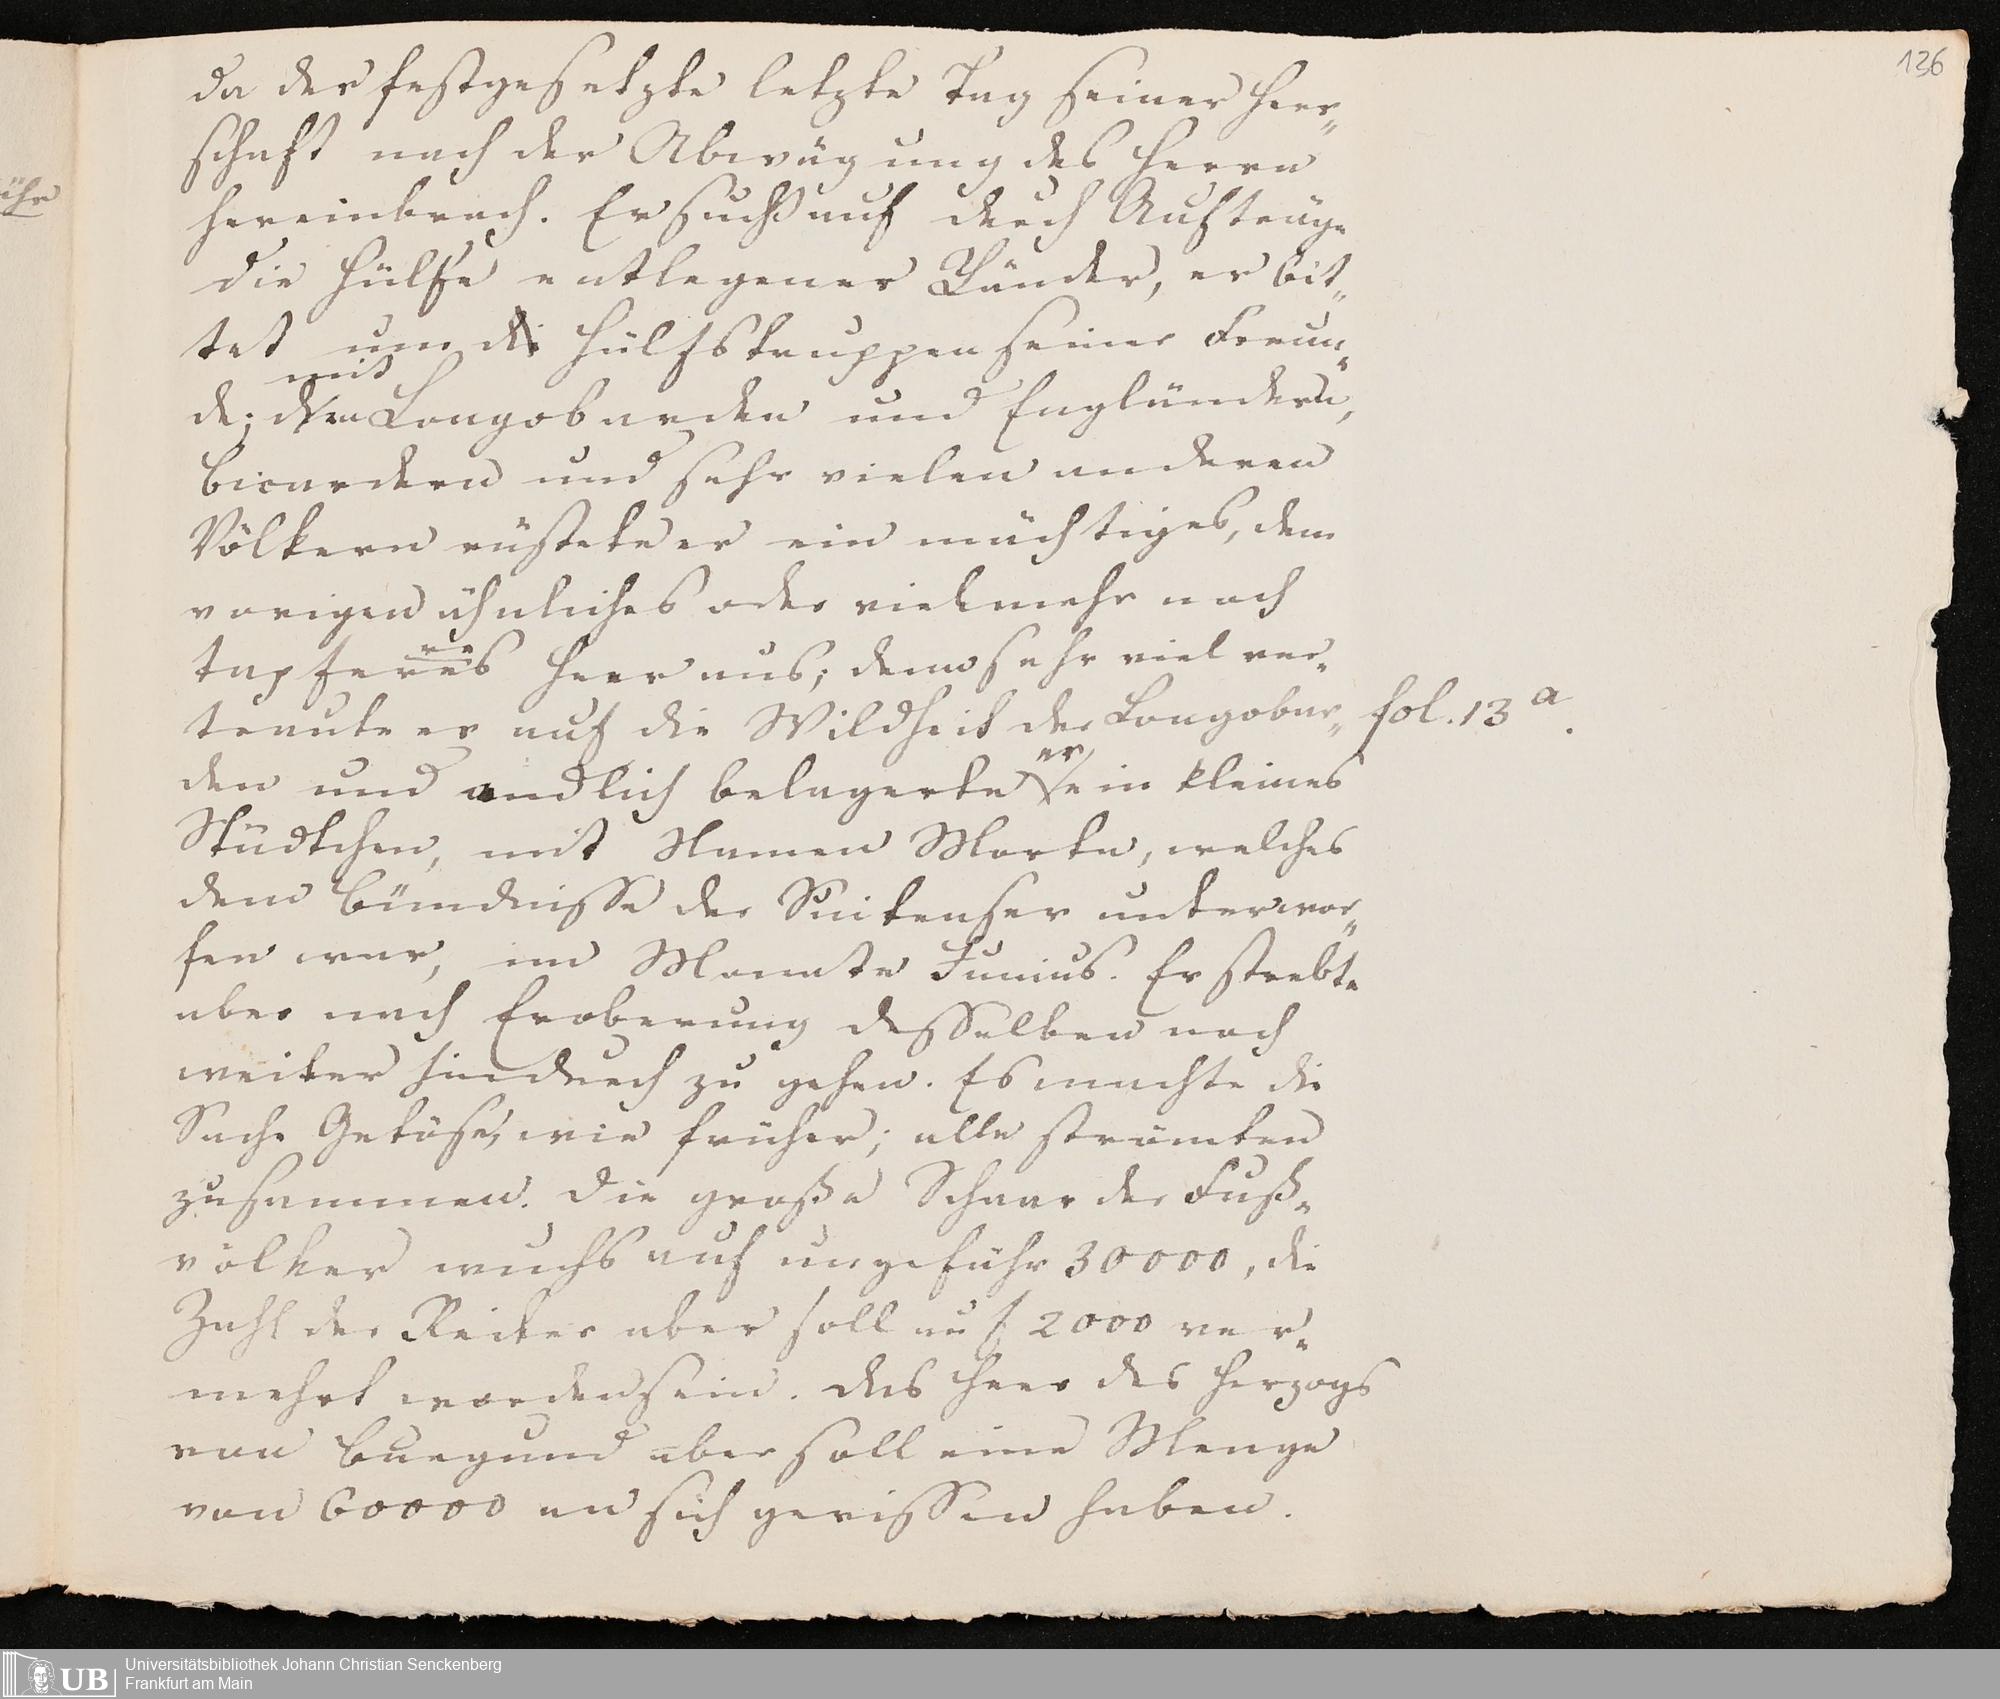 136
da der festgesetzte letzte Tag seiner Herr-
schaft nach der Abwägung des Herrn
hereinbrach. Er sucht auf durch Aufträge
die Hülfe entlegener Länder, er bit-
tet um di Hülfstruppen seiner Freun-
mit
de; den Longobarden und Engländern,
Bicardern und sehr vielen anderen
Völkern rüstete er ein mächtiges, dem
vorigen ähnliches oder vielmehr noch
re
tapferes Heer aus; denn sehr viel ver-
traute er auf die Wildheit der Longobar- fol. 13 a.
er
den und endlich belagerte ein kleines
Städtchen, mit Namen Morta, welches
dem Bündnisse der Suitenser unterwor-
fen war, im Monate Junius. Er strebte
aber nach Eroberung desselben noch
weiter hindurch zu gehen. Es machte die
Sache Getöse, wie früher; alle strömten
zusammen. Die große Schaar der Fuß-
völker wuchs auf ungefähr 30000, die
Zahl der Reiter aber soll auf 2000 ver-
mehrt worden sein. Das Heer des Herzogs
von Burgund aber soll eine Menge
von 60000 an sich gerissen haben.
UB Universitätsbibliothek Johann Christian Senckenberg
Frankfurt am Main